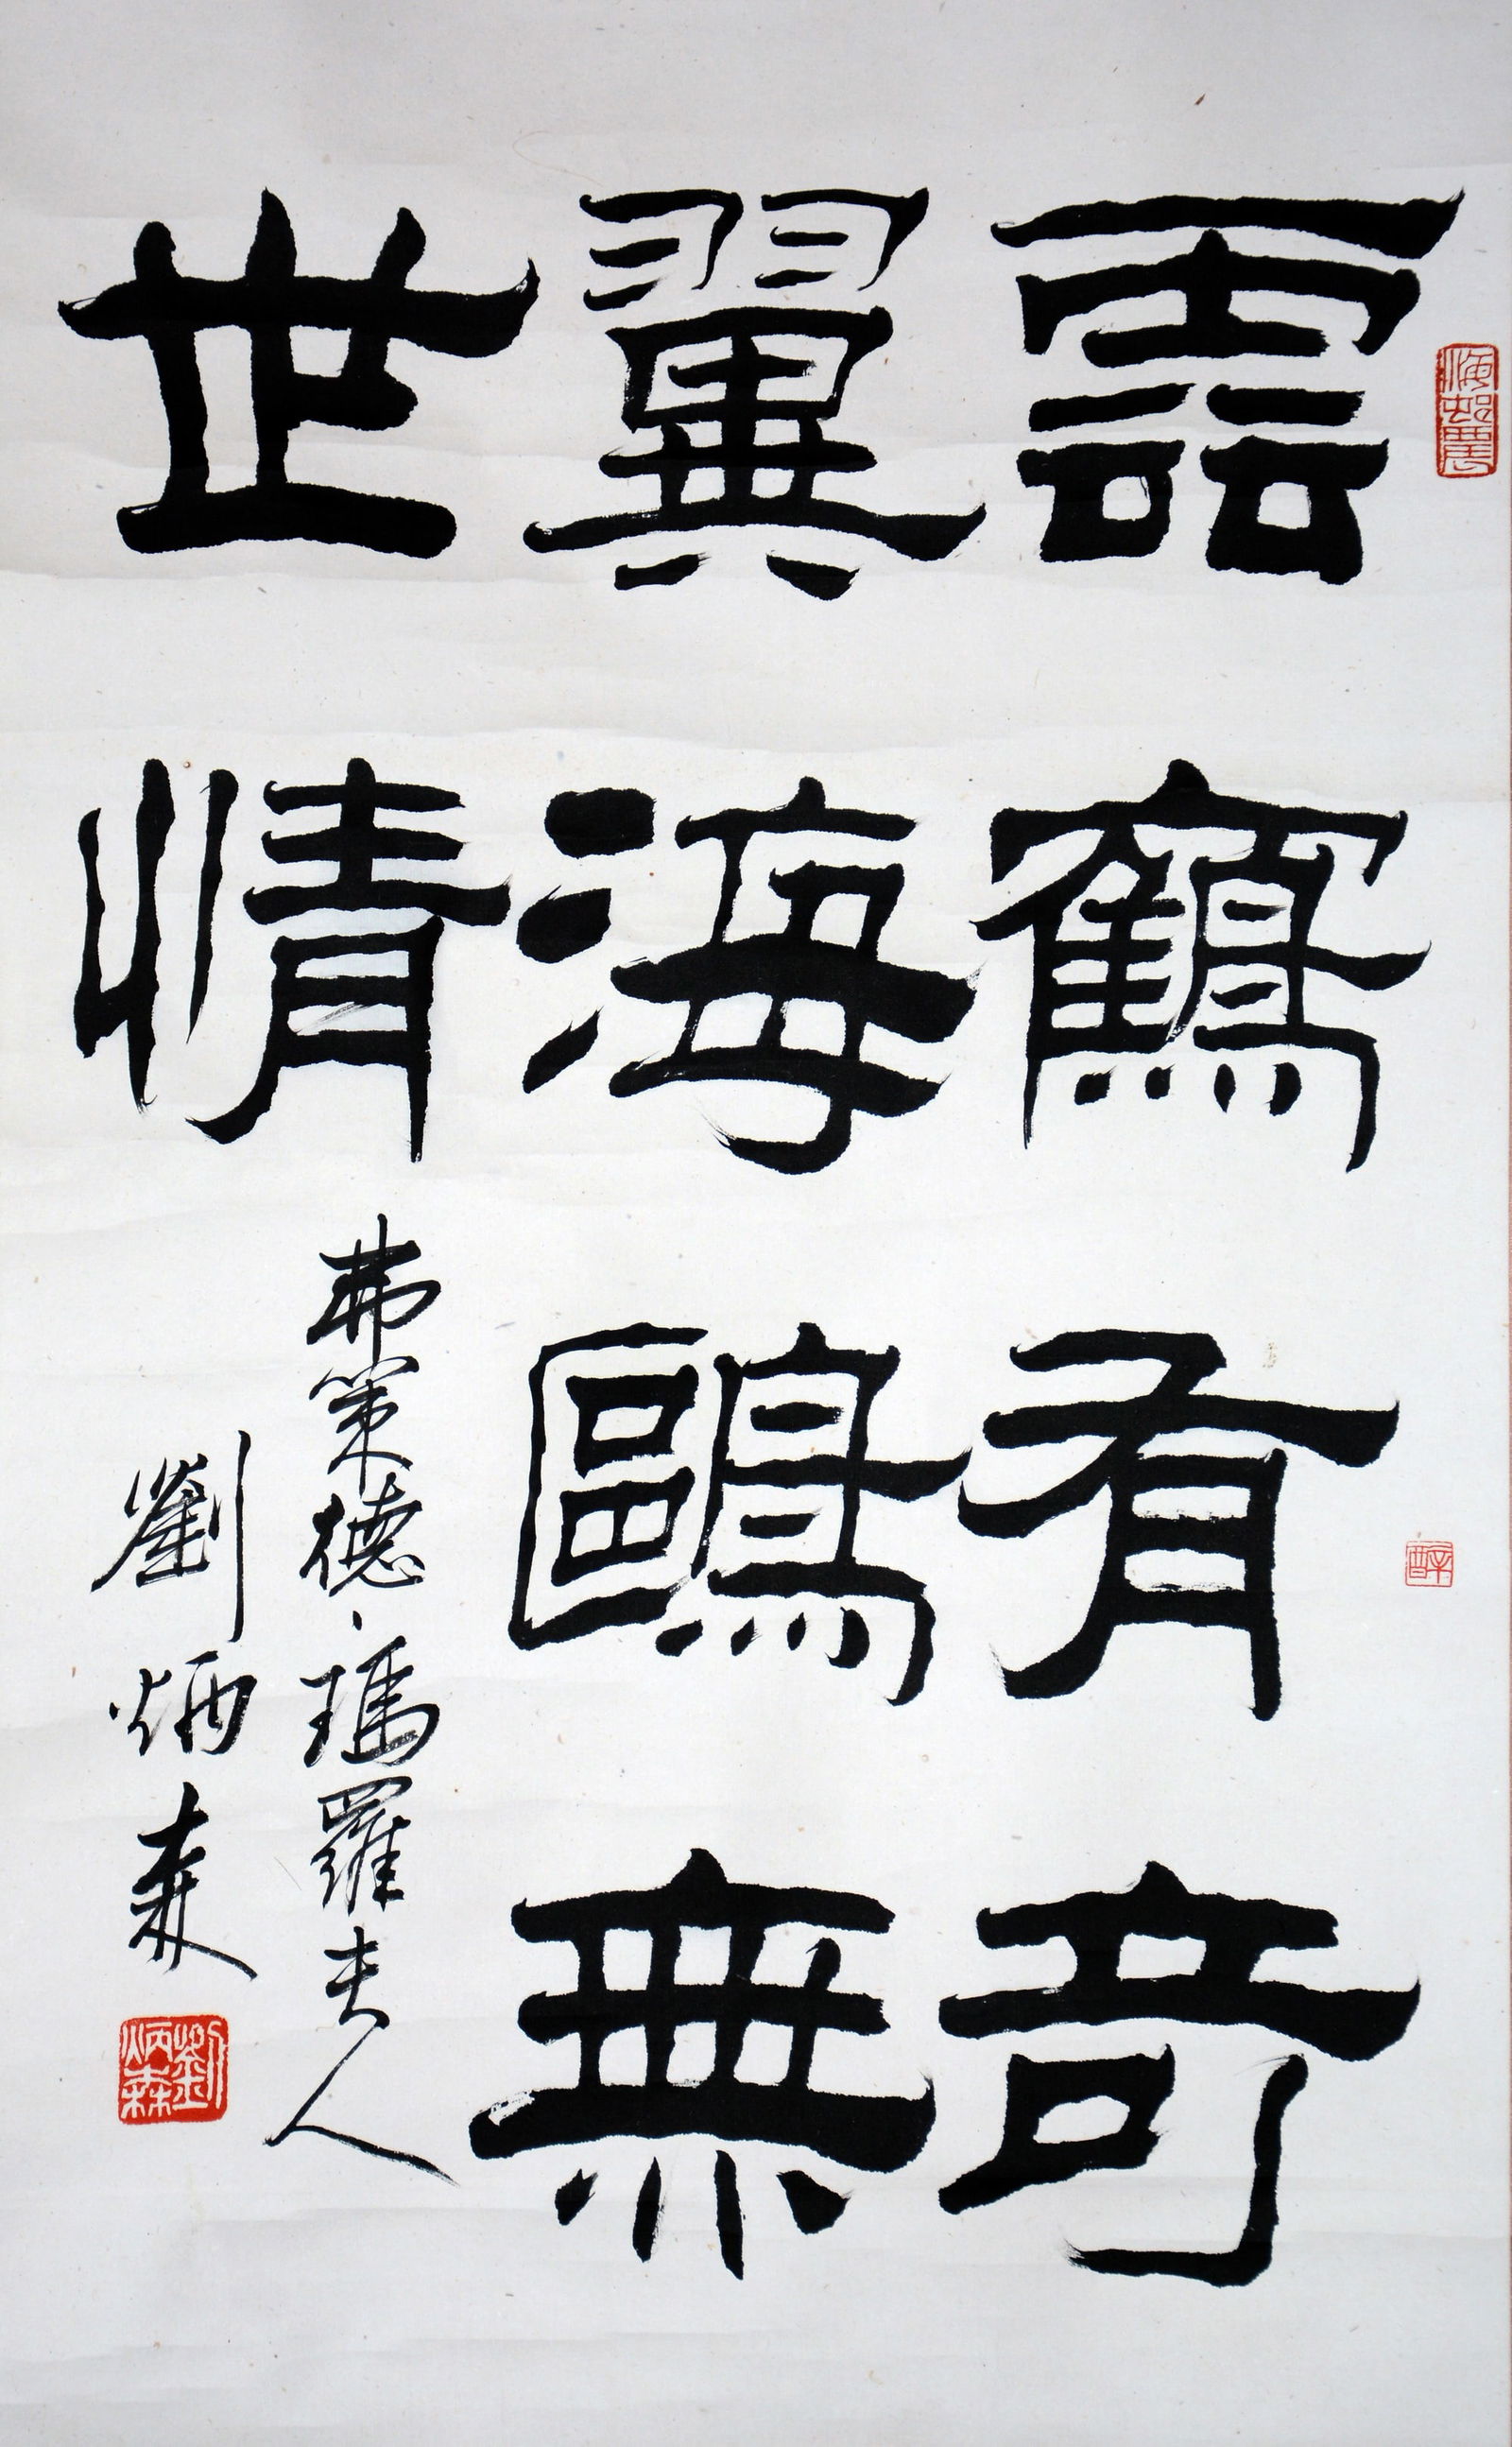 雲鶴有奇
翼海鷗無
世情
弗萊德·瑪羅夫人
劉炳森
劉炳森